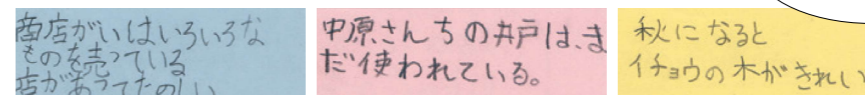 商店がいはいろいろな
ものを売っている
店があってたのしい
中原さんちの井戸は、ま
だ使われている。
秋になると
イチョウの木がきれい